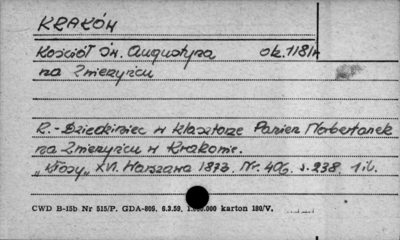 KRAKÓW
Kościół Św. Augustyna ok. 1181 r.
na Zwierzyńcu
R. - Dziedziniec w klasztorze Panien Norbertanek
na Zwierzyńcu w Krakowie.
"Kłosy" XVI. Warszawa 1873. Nr. 406. s. 238. 1 il.
CWD B-15b Nr 515/P. GDA-805. 6.3.59. karton 180/V.